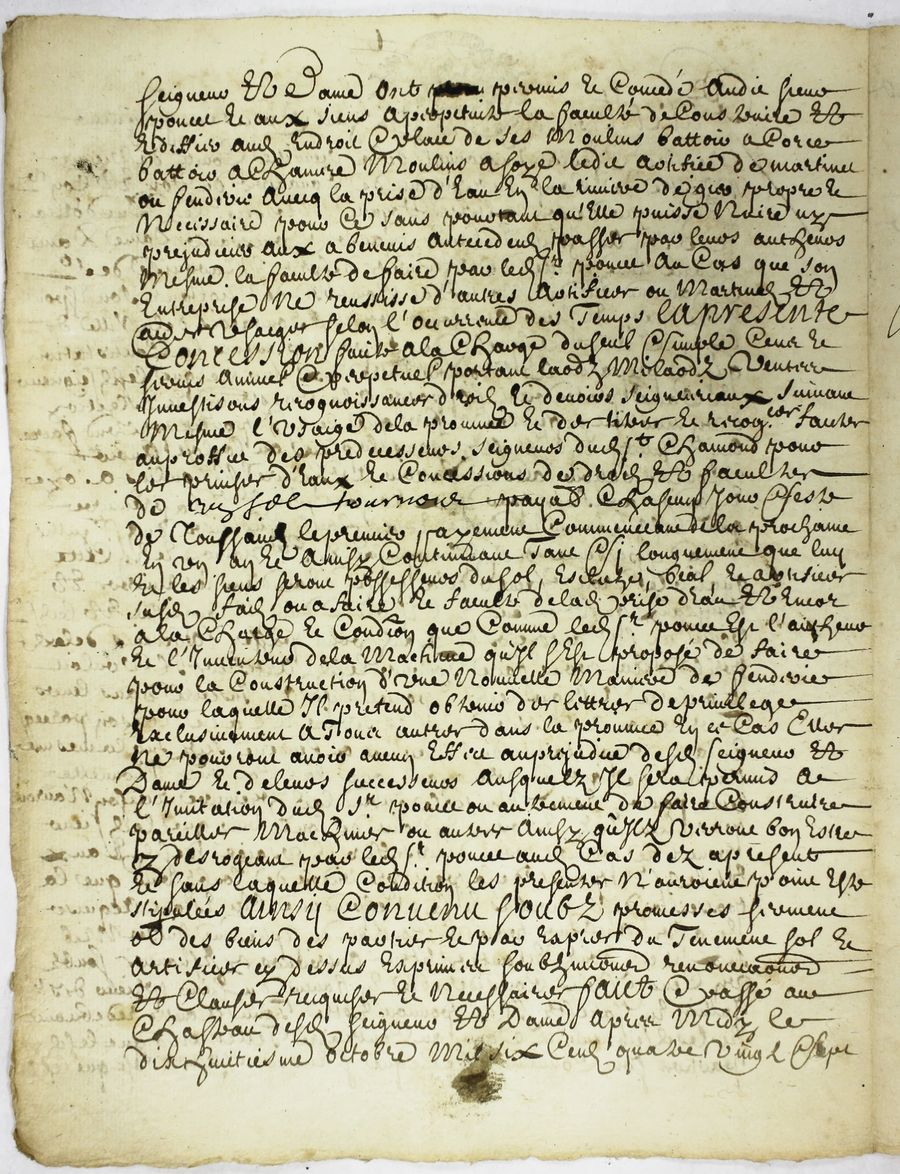 Seigneur et Dame ont permis et Concedé audit sieur
poncet et aux siens a perpetuité la faculté de Construire et
Ediffier aud. Endroit Et place de ses Moulins battoir a Escorce
battoir a Chanvre Moulins a soye ledit artifice de martinet
ou fenderie avecq la prise d'Eau En la riviere de gier propre et
Necessaire pour Ce sans pourtant qu'Elle puisse Nuire ny
prejudicier aux abenevis antecedents passés par leurs autheurs
Mesme la faculté de faire par led. Sr. poncet Au Cas que son
Entreprise Ne reussisse d'autres Artifices ou Martinets et
selon l'ocurrence des Temps la presente
Concession faite a la Charge du seul Et simple Cens et
servis annuel Et perpetuel portant laodz Milaodz Ventes
Investisons recognoissances droits et devoirs seigneuriaux suivant
Mesme l'Usaige de la province et des titres et recog.ces faites
au proffit des predecesseurs Seigneurs dud. St. Chamond pour
les prinses d'Eaux et Concessions de droits et facultés
de sol tournois payab. Chascun Jour Et feste
de Toussaints le premier payement Commenceant de la prochaine
En un an Et Ainsy Continuant Tant Et sy longuement que luy
Et les siens seront possesseurs du sol, Escluze, bial, et artifices
susd. faits ou a faire et faculté de lad. prise d'eau Et Encor
a la Charge et Condi͠on que Comme led. Sr. poncet Est l'autheur
Et l'Inventeur de la Machine qu'Il s'Est proposé de faire
pour la Construction d'Une Nouvelle Maniere de fenderie
pour laquelle Il pretend obtenir des lettres de privilege
Exclusivement a Tous autres dans la province En ce Cas Elles
Ne pourront avoir aucun Effect au prejudice desd. Seigneur et
Dame et de leurs successeurs Ausquelz Il sera permis a
l'Imitation dud. Sr. poncet ou autrement de faire Construire
pareilles Machines ou autres Ainsy qu'Ilz Verront bon Estre
y desrogeant par led. Sr. poncet aud. Cas dez a present
Et sans laquelle Condition les presentes N'auroient point Esté
stipulées Ainsy Convenu soubz promesses serment
ob. des biens des parties et par Expres du Tenement sol et
artifices cy dessus Exprimés soubzmissions renonciations
Et Clauses requises et Necessaires fait Et passé au
Chasteau desd. Seigneur et Dame Apres Midy le
dixhuitiesme octobre Mil six Cents quatre vingt Sept